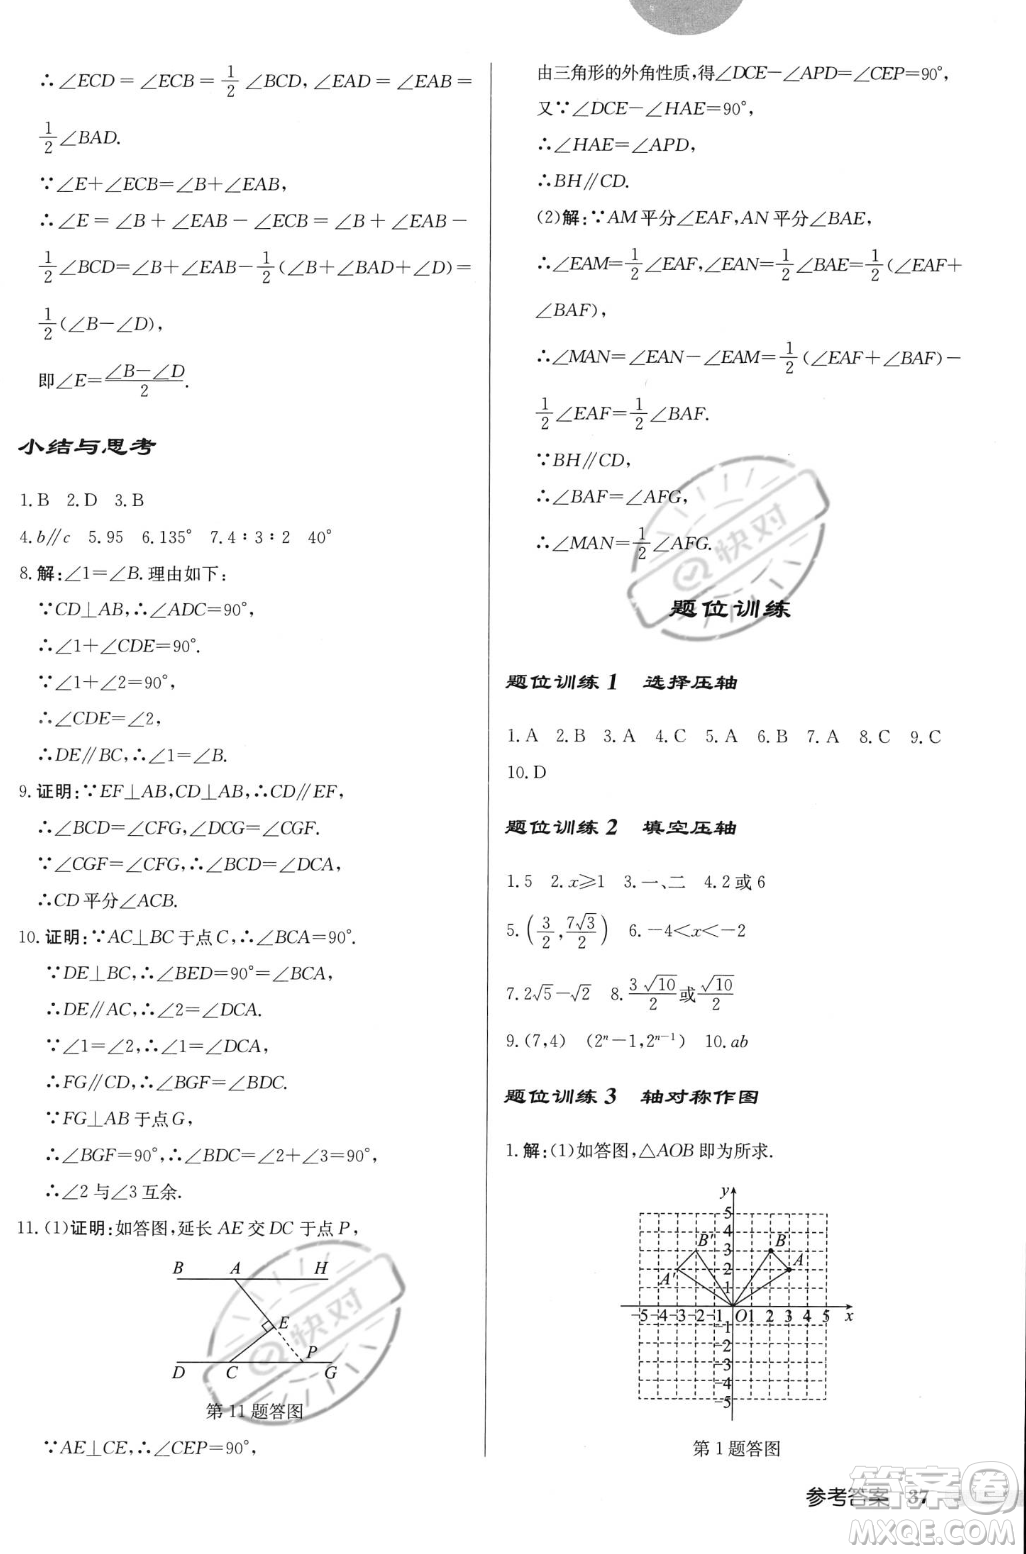 ∴∠ECD=∠ECB=1/2∠BCD,∠EAD=∠EAB=
1/2∠BAD.
∵∠E+∠ECB=∠B+∠EAB,
∴∠E=∠B+∠EAB-∠ECB=∠B+∠EAB-
1/2∠BCD=∠B+∠EAB-1/2(∠B+∠BAD+∠D)=
1/2(∠B-∠D),
即∠E=(∠B-∠D)/2.
小结与思考
1.B 2.D 3.B
4.b∥c 5.95 6.135° 7.4∶3∶2 40°
8.解:∠1=∠B.理由如下:
∵CD⊥AB,∴∠ADC=90°,
∴∠1+∠CDE=90°.
∵∠1+∠2=90°,
∴∠CDE=∠2,
∴DE∥BC,∴∠1=∠B.
9.证明:∵EF⊥AB,CD⊥AB,∴CD∥EF,
∴∠BCD=∠CFG,∠DCG=∠CGF.
∵∠CGF=∠CFG,∴∠BCD=∠DCA,
∴CD平分∠ACB.
10.证明:∵AC⊥BC于点C,∴∠BCA=90°.
∵DE⊥BC,∴∠BED=90°=∠BCA,
∴DE∥AC,∴∠2=∠DCA.
∵∠1=∠2,∴∠1=∠DCA,
∴FG∥CD,∴∠BGF=∠BDC.
∵FG⊥AB于点G,
∴∠BGF=90°,∴∠BDC=∠2+∠3=90°,
∴∠2与∠3互余.
11.(1)证明:如答图,延长AE交DC于点P,
B A H
E
P
D C G
第11题答图
∵AE⊥CE,∴∠CEP=90°,
由三角形的外角性质,得∠DCE-∠APD=∠CEP=90°,
又∵∠DCE-∠HAE=90°,
∴∠HAE=∠APD,
∴BH∥CD.
(2)解:∵AM平分∠EAF,AN平分∠BAE,
∴∠EAM=1/2∠EAF,∠EAN=1/2∠BAE=1/2(∠EAF+
∠BAF),
∴∠MAN=∠EAN-∠EAM=1/2(∠EAF+∠BAF)-
1/2∠EAF=1/2∠BAF.
∵BH∥CD,
∴∠BAF=∠AFG,
∴∠MAN=1/2∠AFG.
题位训练
题位训练1 选择压轴
1.A 2.B 3.A 4.C 5.A 6.B 7.A 8.C 9.C
10.D
题位训练2 填空压轴
1.5 2.x≥1 3.一、二 4.2或6
5.(3/2,7√3/2) 6.-4<x<-2
7.2√5-√2 8.3√10/2或√10/2
9.(7,4) (2ⁿ-1,2ⁿ⁻¹) 10.ab
题位训练3 轴对称作图
1.解:(1)如答图,△AOB即为所求.
y
5
4
B′ 3 B
A′ 2 A
1
-5-4-3-2-1 O1 2 3 4 5 x
-1
-2
-3
-4
-5
第1题答图
参考答案 37
快对
快对
答案圈
MXQE.COM